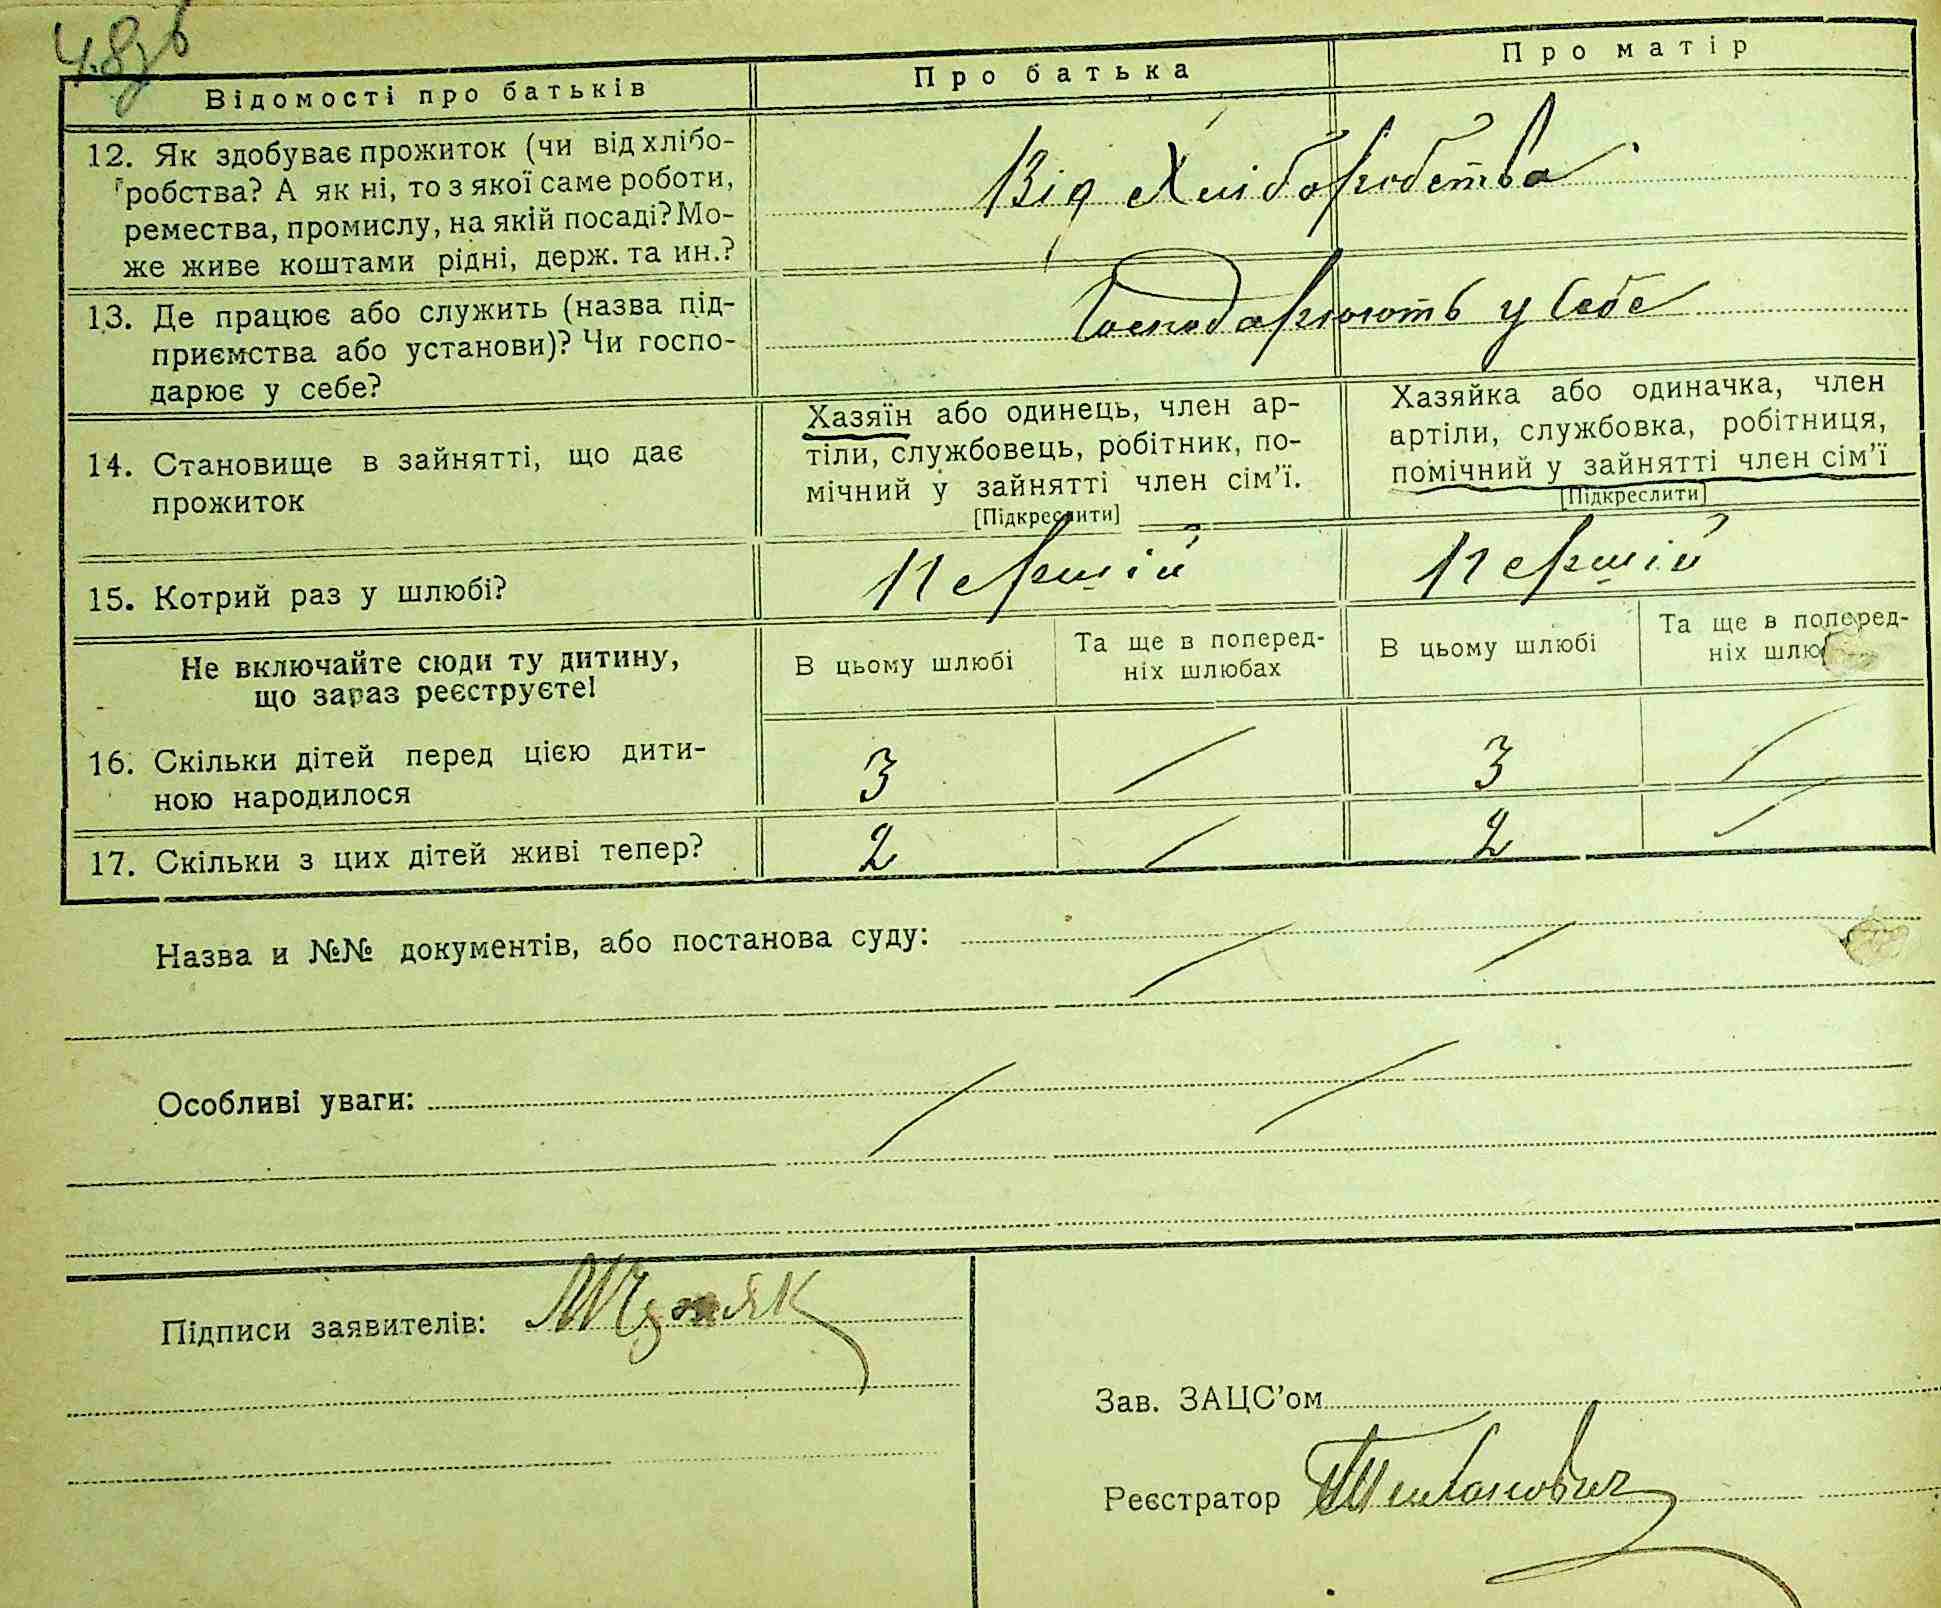 Відомості про батьків
Про батька
Про матір
12. Як здобуває прожиток (чи від хлібо-
робства? А як ні, то з якої саме роботи,
ремества, промислу, на якій посаді? Мо-
же живе коштами рідні, держ. та ин.?
Від Хліборобства
13. Де працює або служить (назва під-
приємства або установи)? Чи госпо-
дарює у себе?
Господарюють у себе
14. Становище в зайнятті, що дає
прожиток
Хазяїн або одинець, член ар-
тіли, службовець, робітник, по-
мічний у зайнятті член сім'ї.
[Підкреслити]
Хазяйка або одиначка, член
артіли, службовка, робітниця,
помічний у зайнятті член сім'ї
[Підкреслити]
15. Котрий раз у шлюбі?
Першій
Першій
Не включайте сюди ту дитину,
що зараз реєструєте!
В цьому шлюбі
Та ще в поперед-
ніх шлюбах
В цьому шлюбі
Та ще в поперед-
ніх
16. Скільки дітей перед цією дити-
ною народилося
3 / 3 /
17. Скільки з цих дітей живі тепер?
2 / 2 /
Назва и №№ документів, або постанова суду: / /
Особливі уваги: / /
Підписи заявителів:
Зав. ЗАЦС'ом
Реєстратор